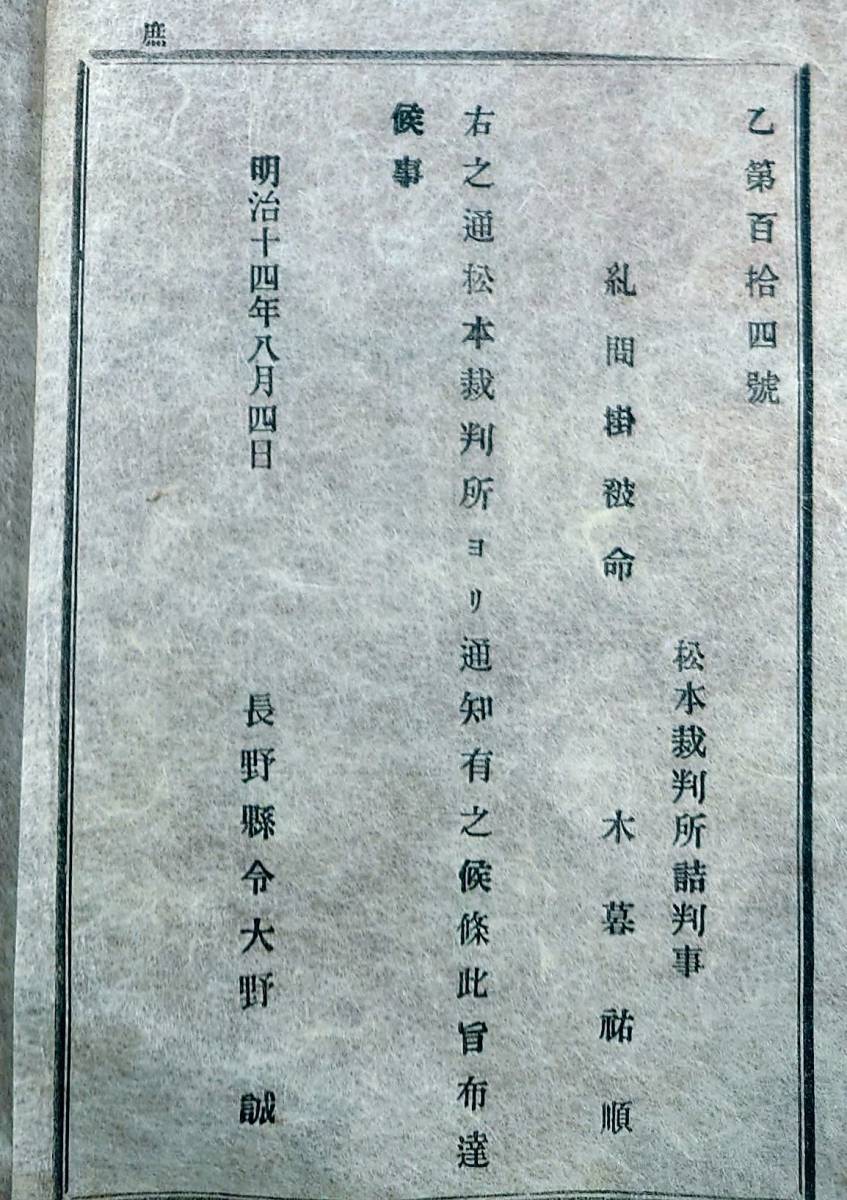 庶
乙第百拾四號
松本裁判所詰判事
糺問掛被命　木暮祐順
右之通松本裁判所ヨリ通知有之候條此旨布達
候事
明治十四年八月四日　長野縣令大野　誠